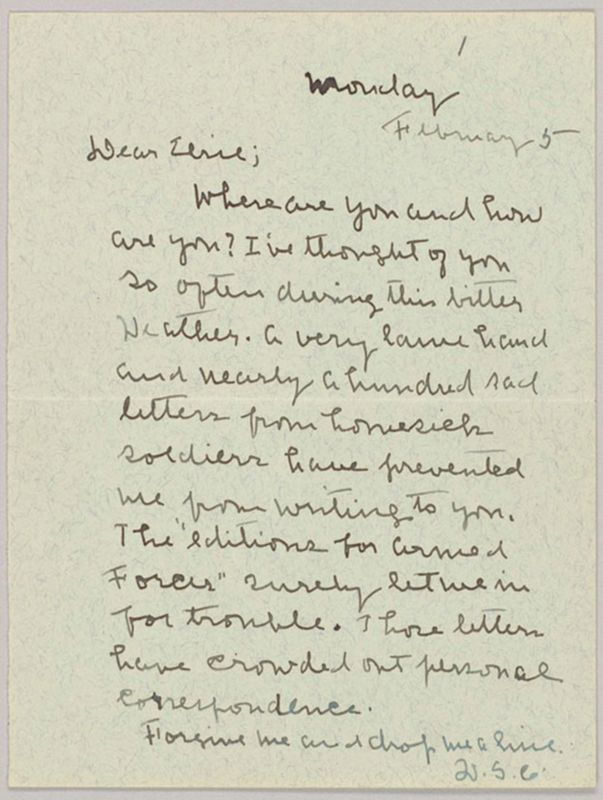 1
Monday
February 5
Dear Elsie;
Where are you and how
are you? I've thought of you
so often during this bitter
weather. A very lame hand
and nearly a hundred sad
letters from homesick
soldiers have prevented
me from writing to you.
The "Editions for Armed
Forces" surely let me in
for trouble. Those letters
have crowded out personal
correspondence.
Forgive me and drop me a line.
W.S.C.